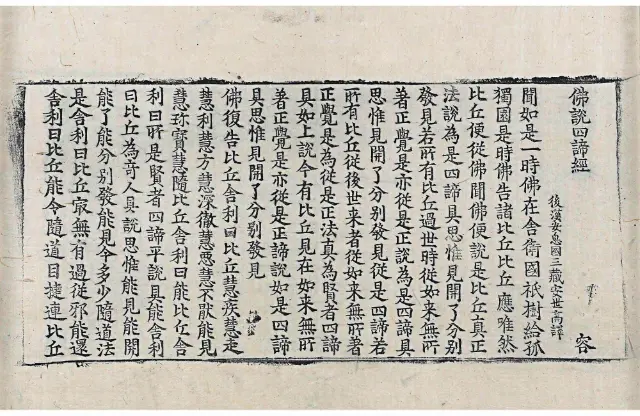 佛說四諦經 容
後漢安息國三藏安世高譯
聞如是一時佛在舍衛國祇樹給孤
獨園是時佛告諸比丘比丘應唯然
比丘便從佛聞佛便說是比丘真正
法說為是四諦具思惟見開了分別
發見若所有比丘過世時從如來無所
著正覺是亦從是正說為是四諦具
思惟見開了分別發見從是四諦若
所有比丘從後世來者從如來無所著
正覺是為從是正法真為賢者四諦
具如上說今有比丘見在如來無所
著正覺是亦從是正諦說如是四諦
具思惟見開了分別發見
佛復告比丘舍利曰比丘慧疾慧走
慧利慧方慧深徹慧悪慧不猒能見
慧珎寶慧隨比丘舍利曰能比丘舍
利曰所是賢者四諦平說具能舍利
曰比丘為奇人具說思惟能見能開
能了能分別發能見令多少隨道法
是舍利曰比丘㝡無有過從邪能還
舍利曰比丘能令隨道目揵連比丘